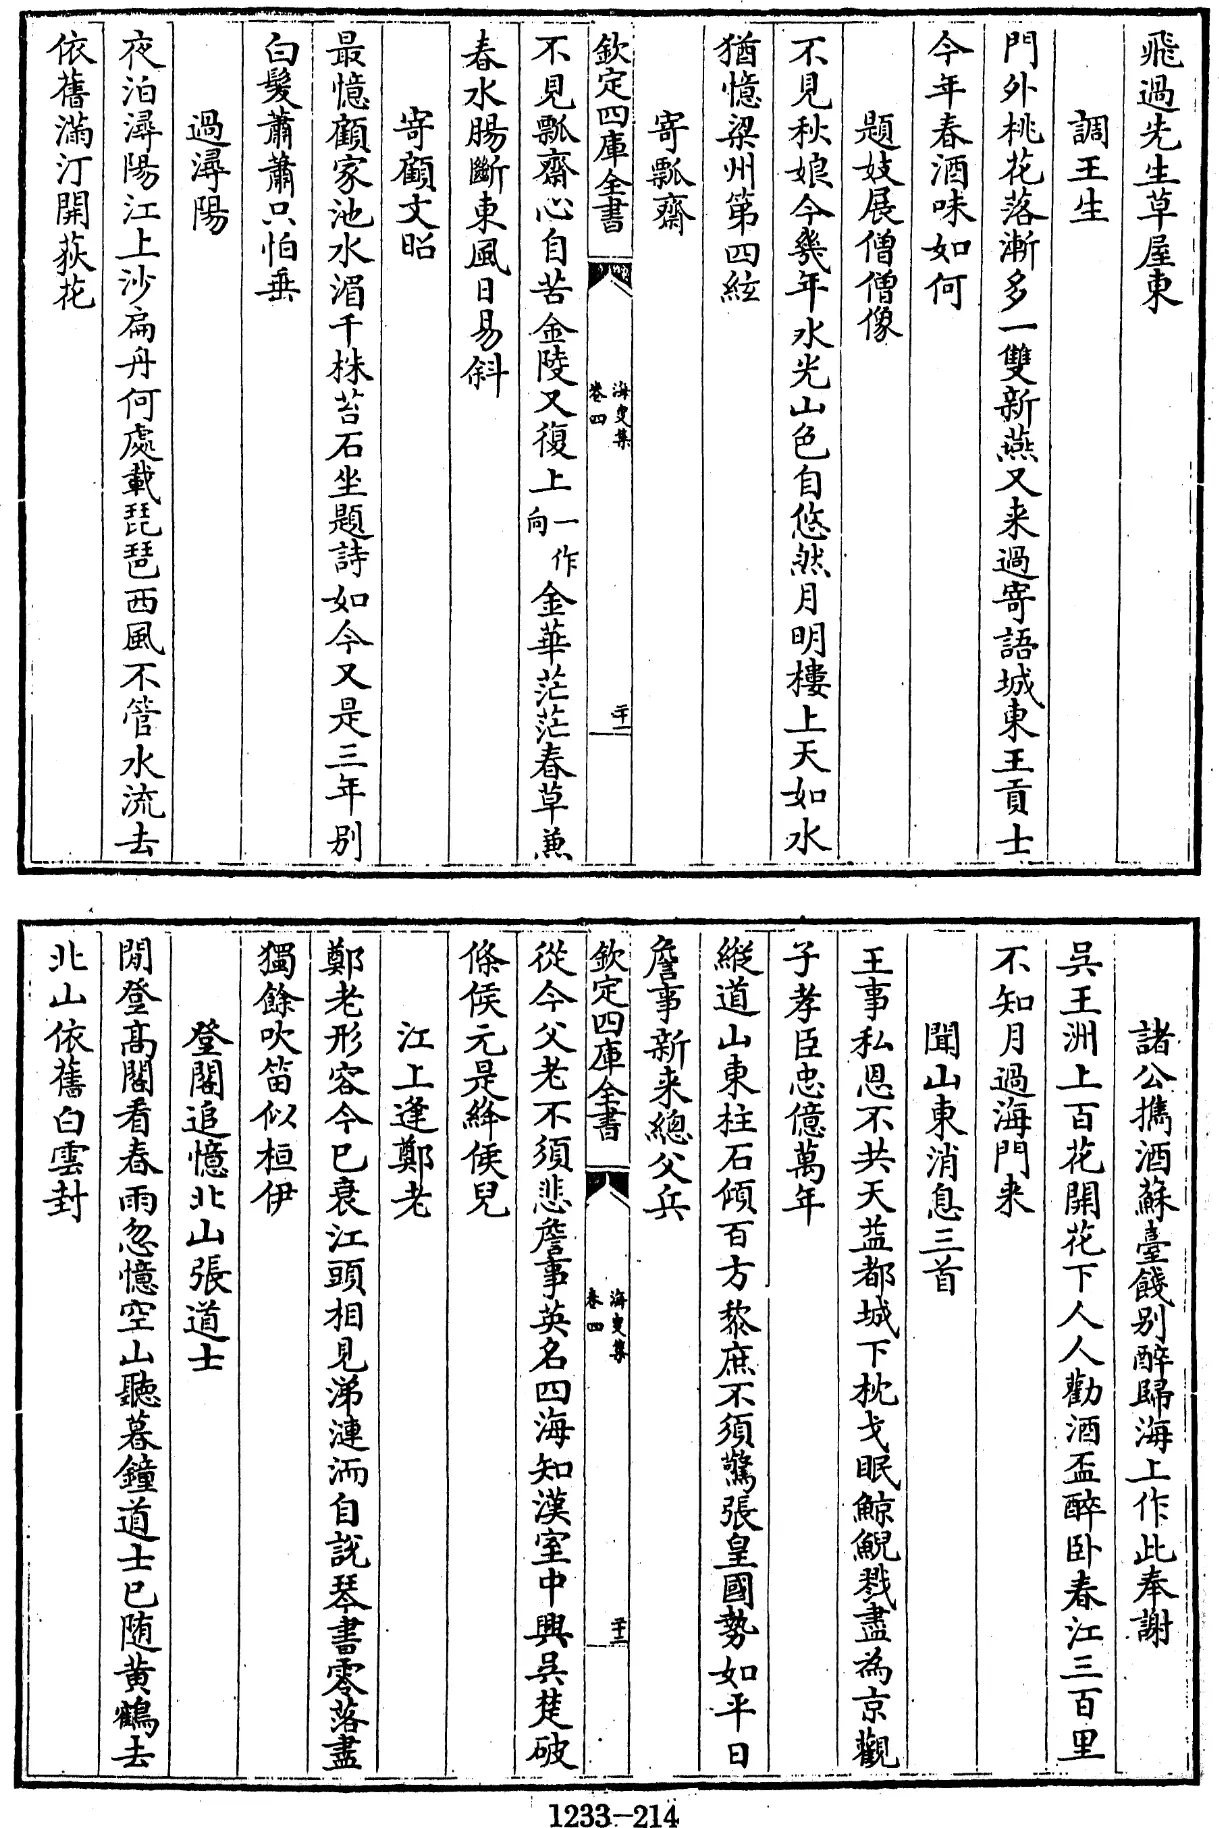 飛過先生草屋東
調王生
門外桃花落漸多一雙新燕又来過寄語城東王貢士
今年春酒味如何
題妓展僧僧像
不見秋娘今幾年水光山色自悠然月明樓上天如水
猶憶梁州第四絃
寄瓢齋
欽定四庫全書
海叟集
卷四
二十一
不見瓢齋心自苦金陵又復上一作向金華茫茫春草兼
春水腸斷東風日易斜
寄顧文昭
最憶顧家池水湄千株苔石坐題詩如今又是三年别
白髮蕭蕭只怕垂
過潯陽
夜泊潯陽江上沙扁舟何處載琵琶西風不管水流去
依舊滿汀開荻花
諸公攜酒蘇臺餞别醉歸海上作此奉謝
吳王洲上百花開花下人人勸酒盃醉卧春江三百里
不知月過海門来
聞山東消息三首
王事私恩不共天益都城下枕戈眠鯨鯢戮盡為京觀
子孝臣忠億萬年
縱道山東柱石傾百方黎庶不須驚張皇國勢如平日
詹事新来總父兵
欽定四庫全書
海叟集
卷四
二十二
從今父老不須悲詹事英名四海知漢室中興吳楚破
條侯元是絳侯兒
江上逢鄭老
鄭老形容今已衰江頭相見涕漣洏自說琴書零落盡
獨餘吹笛似桓伊
登閣追憶北山張道士
閒登高閣看春雨忽憶空山聽暮鐘道士已随黄鶴去
北山依舊白雲封
1233-214